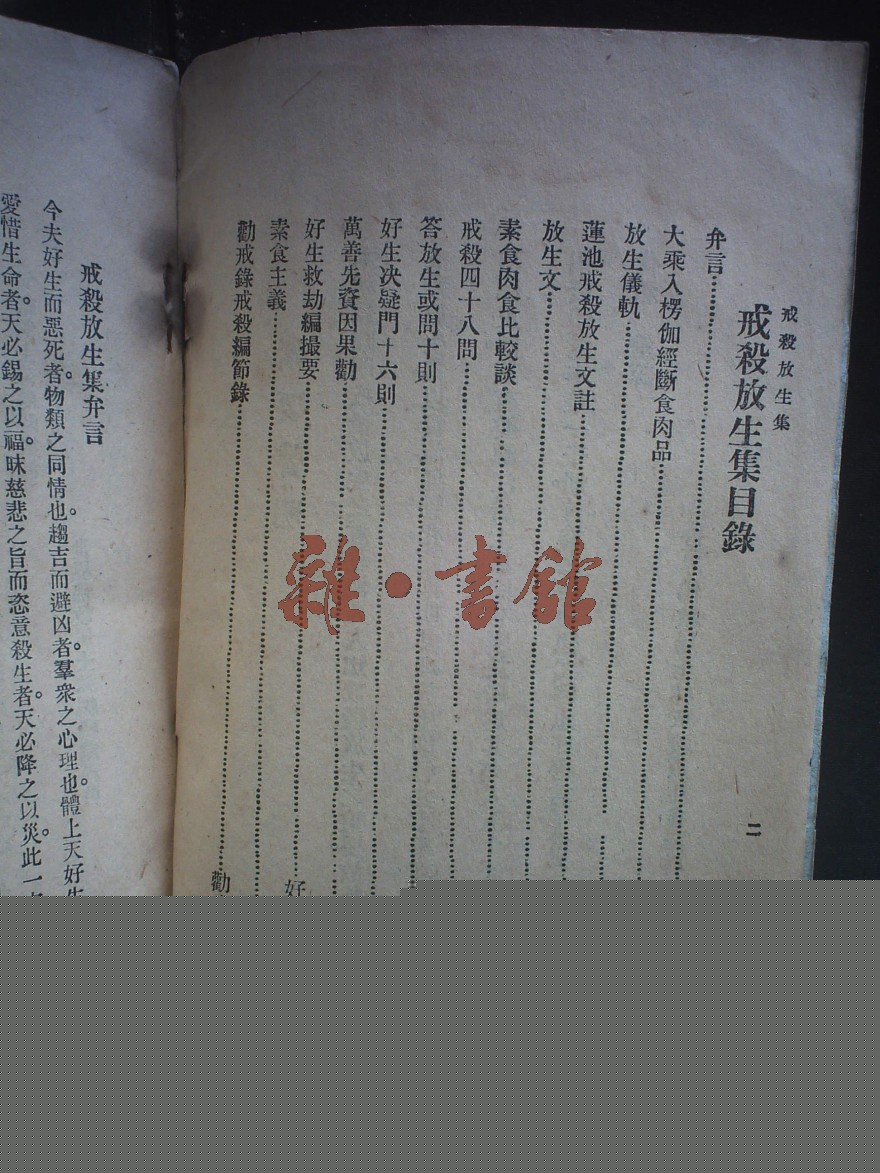 戒殺放生集
戒殺放生集目錄
二
弁言
大乘入楞伽經斷食肉品
放生儀軌
蓮池戒殺放生文註
放生文
素食肉食比較談
戒殺四十八問
答放生或問十則
好生决疑門十六則
萬善先資因果勸
好生救劫編撮要
好
素食主義
勸戒錄戒殺編節錄
勸
雜·書館
戒殺放生集弁言
今夫好生而惡死者。物類之同情也。趨吉而避凶者。羣衆之心理也。體上天好生
愛惜生命者。天必錫之以福。昧慈悲之旨而恣意殺生者。天必降之以災。此一